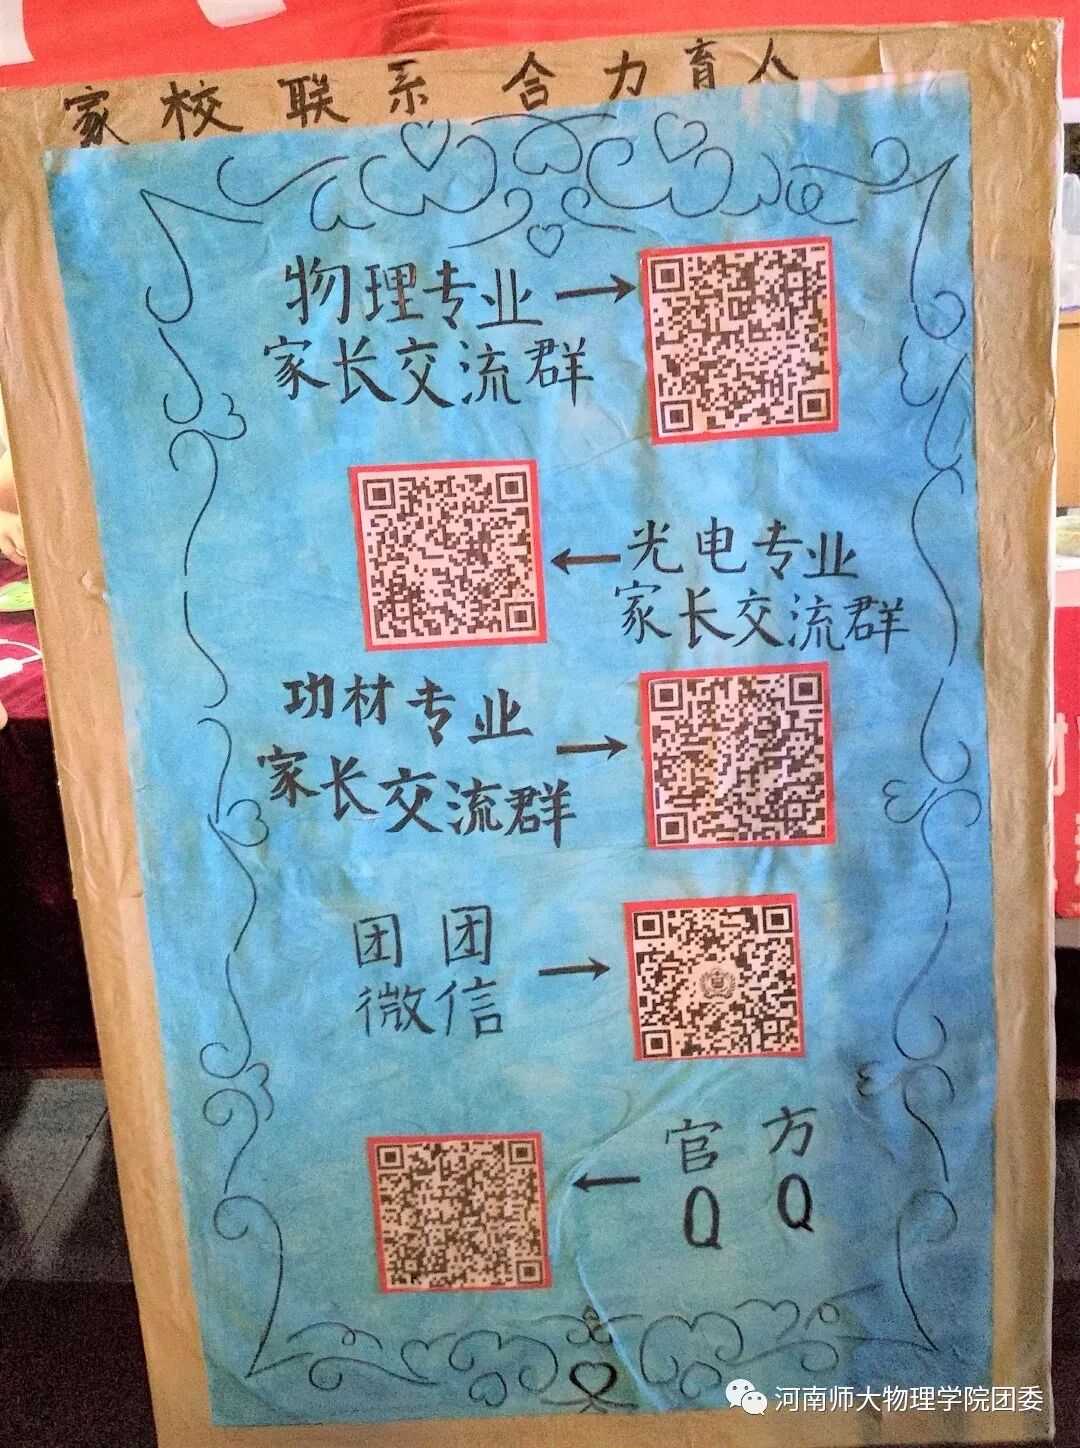 家校联系 合力育人
物理专业
家长交流群
光电专业
家长交流群
功材专业
家长交流群
团团
微信
官方
QQ
河南师大物理学院团委